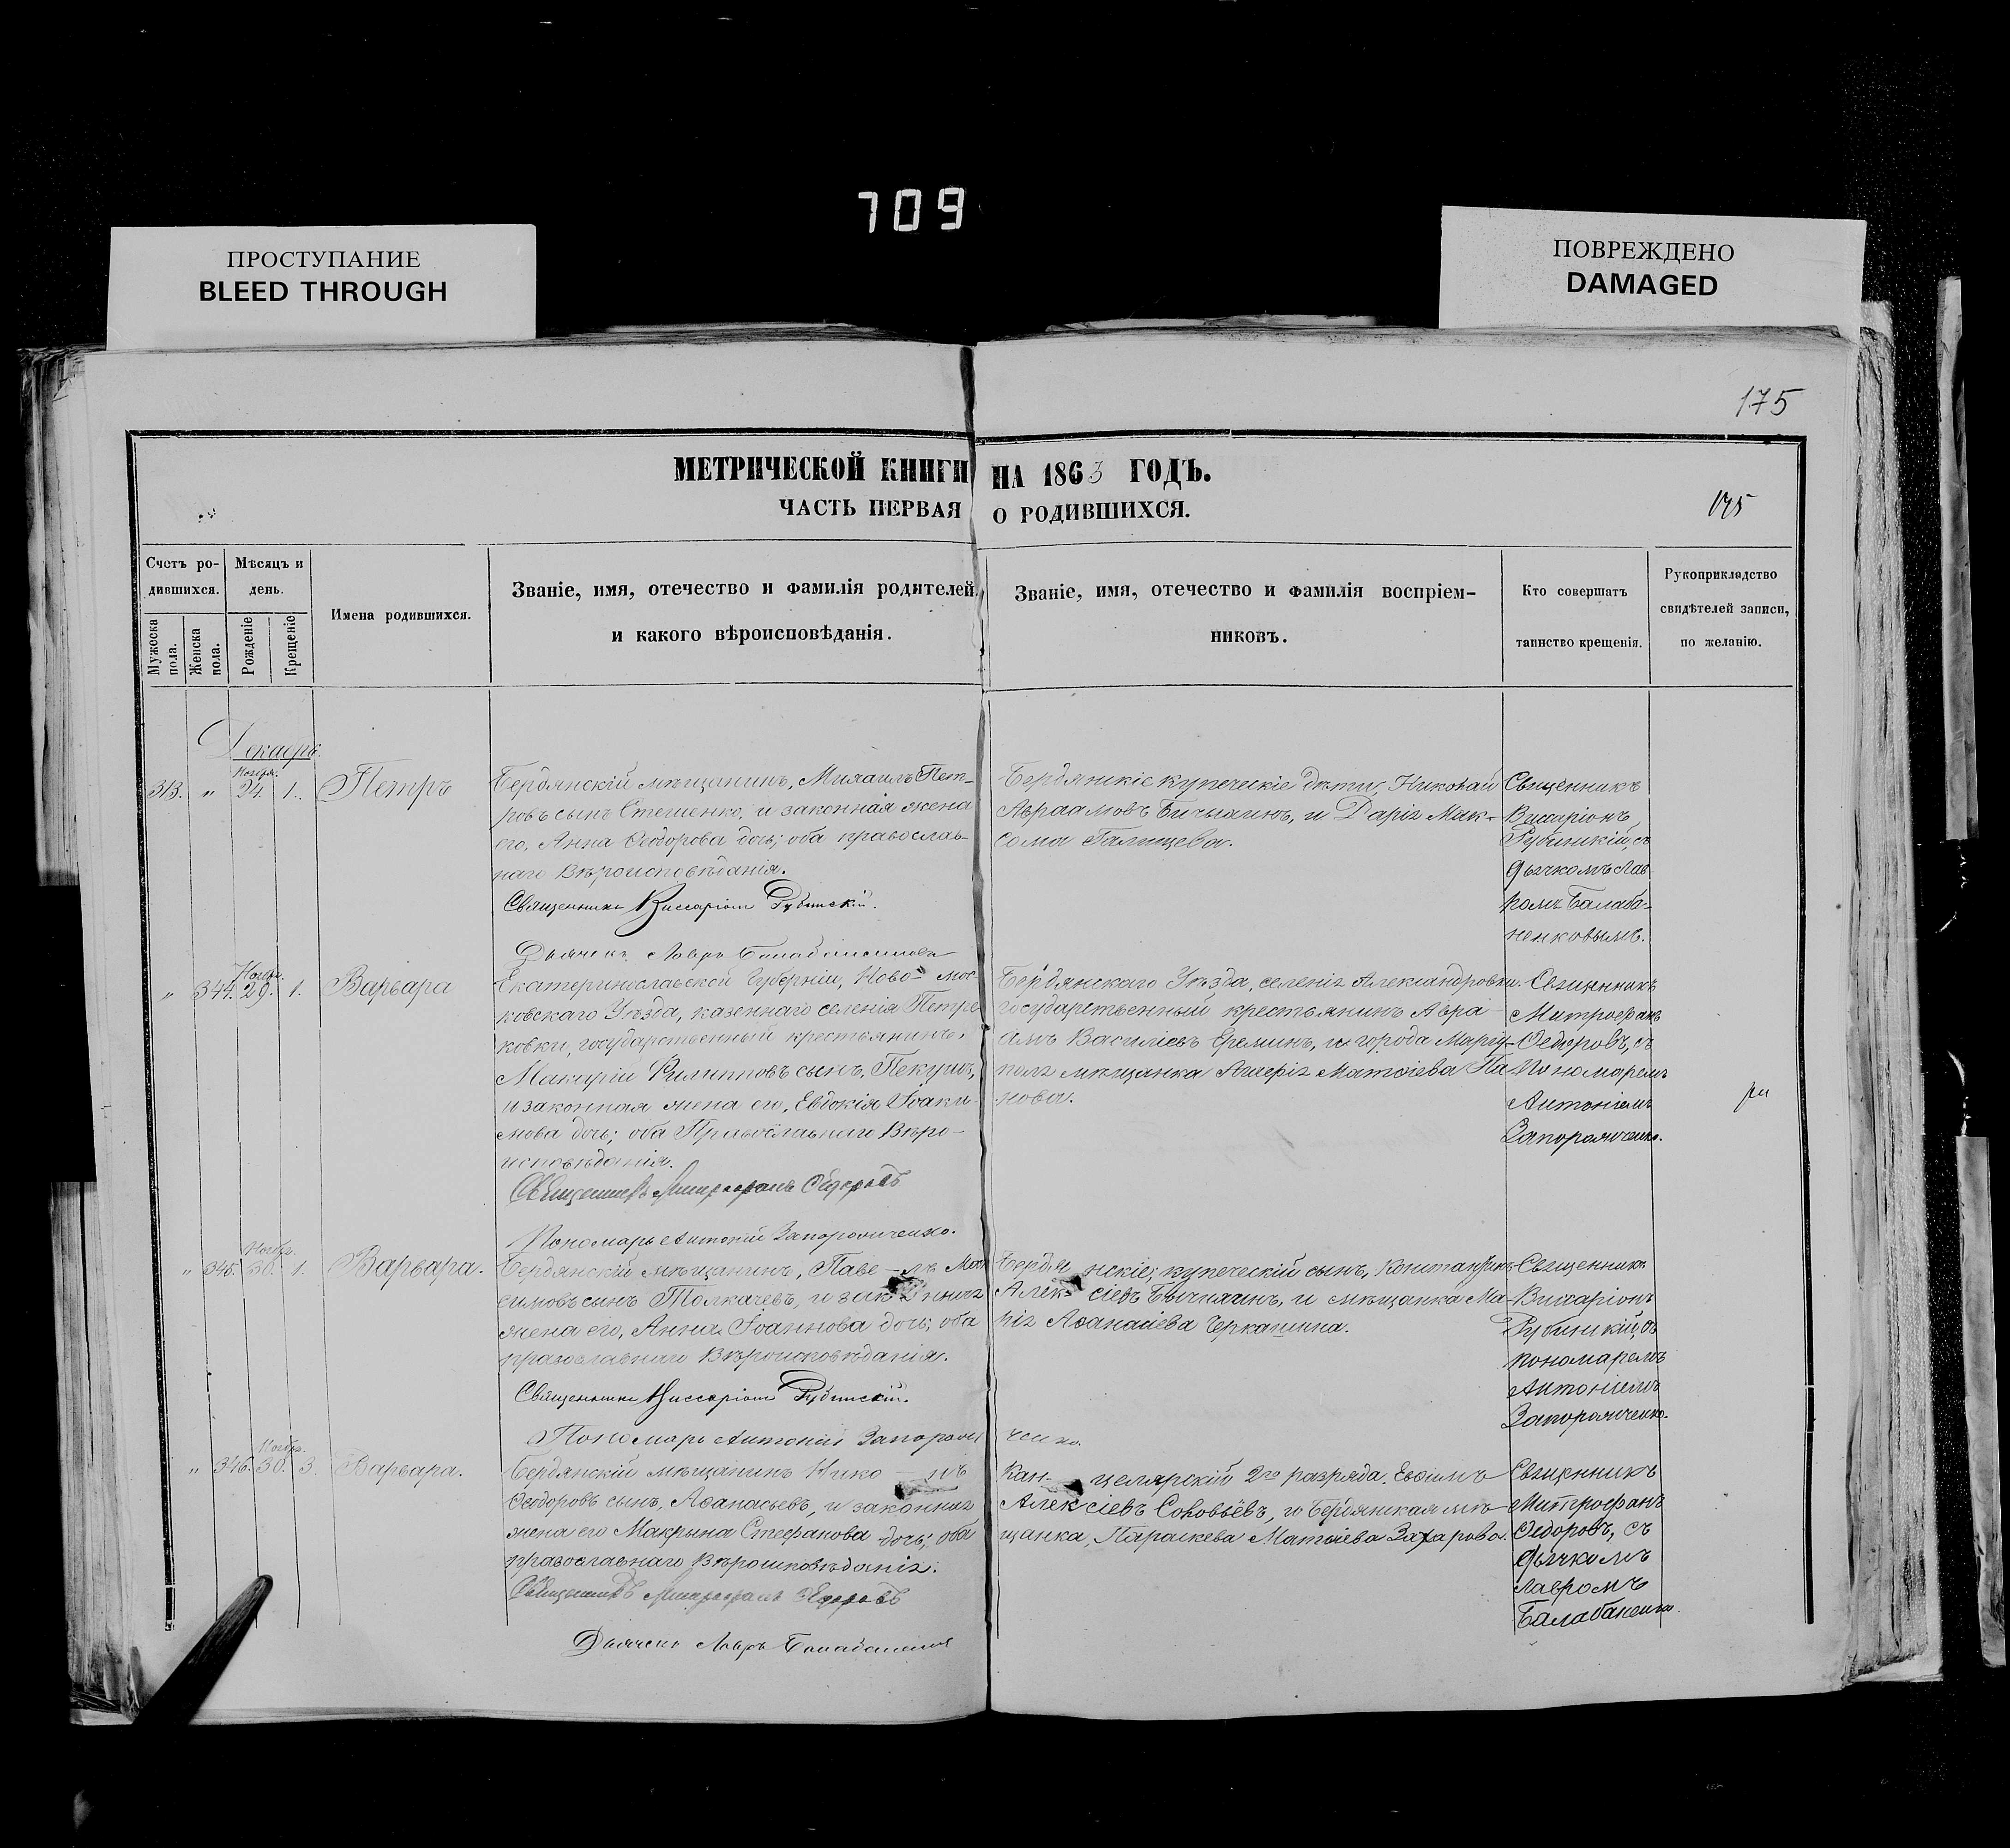 709
ПРОСТУПАНИЕ
BLEED THROUGH
ПОВРЕЖДЕНО
DAMAGED
175
МЕТРИЧЕСКОЙ КНИГИ НА 1863 ГОДЪ.
ЧАСТЬ ПЕРВАЯ О РОДИВШИХСЯ.
175
Счетъ ро-
дившихся.
Мужеска
пола.
Женска
пола.
Мѣсяцъ и
день.
Рожденіе
Крещеніе
Имена родившихся.
Званіе, имя, отечество и фамилія родителей,
и какого вѣроисповѣданія.
Званіе, имя, отечество и фамилія воспріем-
никовъ.
Кто совершатъ
таинство крещенія.
Рукоприкладство
свидѣтелей записи,
по желанію.
Декабрь.
313. " Ноября. 24. 1. Петръ
Бердянскій мѣщанинъ, Михаилъ Пет-
ровъ сынъ Стешенко, и законная жена
его, Анна Ѳеодорова дочь; оба православ-
наго Вѣроисповѣданія.
Священникъ Виссаріонъ Рубинскій.
Дьячекъ Лавръ
Бердянскіе купеческіе дѣти, Николай
Авраамовъ и Дарія Мак-
сома
Священникъ
Виссаріонъ
Рубинскій, съ
дьячкомъ Лав-
ромъ Балаба-
ненковымъ.
" 344. Ноябр. 29. 1. Варвара
Екатеринославской Губерніи, Ново-мос-
ковскаго Уѣзда, казеннаго селенія Петри-
ковки, государственный крестьянинъ,
Макарій Филипповъ сынъ,
и законная жена его, Евдокія Іоаки-
мова дочь; оба Православнаго Вѣро-
исповѣданія.
Священникъ Митрофанъ Ѳедоровъ
Пономарь Антоній Запорожченко.
Бердянскаго Уѣзда, селенія Александровки.
государственный крестьянинъ Авра-
амъ Василіевъ Ереминъ, и города Маріу-
поля мѣщанка Матѳіева Па-
нова.
Священникъ
Митрофанъ
Ѳедоровъ, съ
Пономаремъ
Антоніемъ
Запорожченко.
" 345. Ноябр. 30. 1. Варвара.
Бердянскій мѣщанинъ, Паве-лъ Мак-
симовъ сынъ Толкачевъ, и законная
жена его, Анна Іоаннова дочь; оба
православнаго Вѣроисповѣданія.
Священникъ Виссаріонъ Рубинскій.
Пономарь Антоній Запорож ченко.
Бердянскіе; купеческій сынъ, Константинъ
Алексіевъ и мѣщанка Ма-
рія Аѳанасіева Черкашина.
Священникъ
Виссаріонъ
Рубинскій, съ
пономаремъ
Антоніемъ
Запорожченко.
" 346. Ноябр. 30. 3. Варвара.
Бердянскій мѣщанинъ Нико-
Ѳеодоровъ сынъ, Аѳанасьевъ, и законная
жена его Макрина Стефанова дочь; оба
православнаго Вѣроисповѣданія.
Священникъ Митрофанъ Ѳедоровъ
Дьячекъ Лавръ
Кан-целярскій 2го разряда, Евѳимъ
Алексіевъ Соловьёвъ, и Бердянская мѣ-
щанка, Параскева Матѳіева Захарова.
Священникъ
Митрофанъ
Ѳедоровъ, съ
дьячкомъ
Лавромъ
Балабаненко.